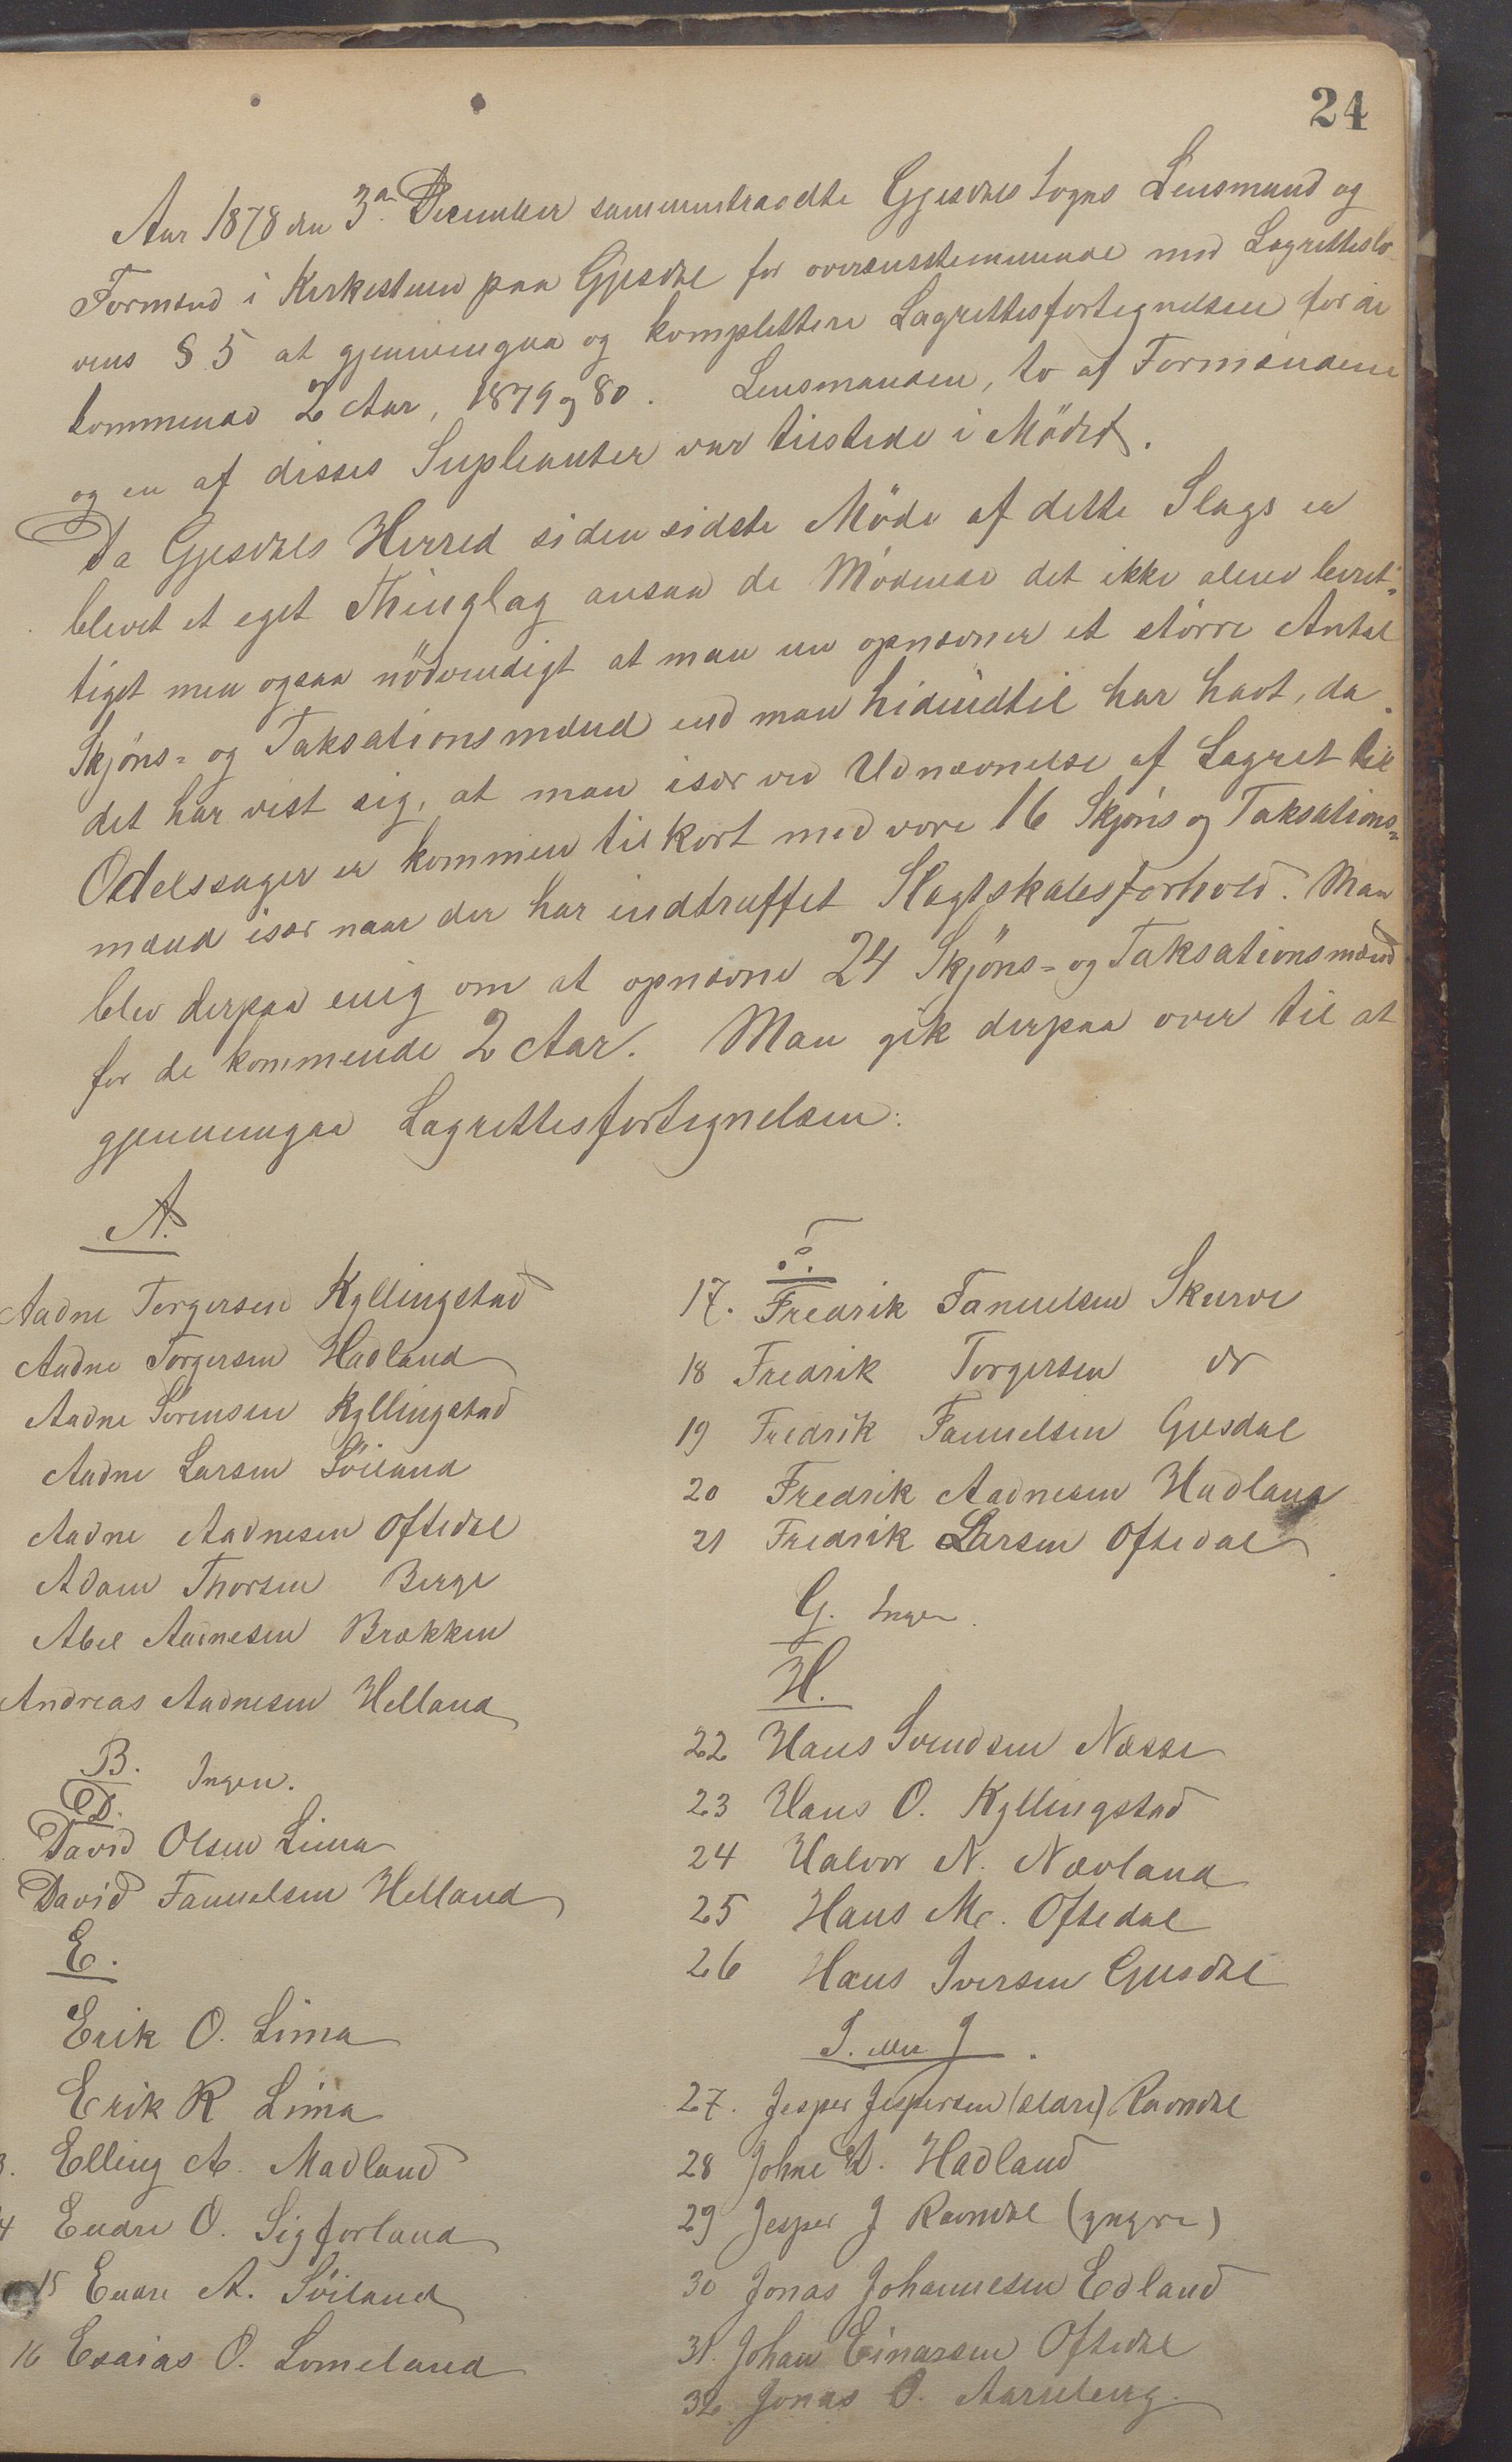 24
Aar 1878 den 3die December sammentraadte Gjesdals Sogns Lensmand og
Formænd i Kirkestuen paa Gjesdal for overensstemmende med Lagretteslo
vens § 5 at gjennemgaa og komplettere Lagrettesfortegnelsen for de
kommende 2 Aar, 1879 og 80. Lensmanden, to af Formændene
og en af disses Supleanter var tilstede i Mödet.
Da Gjesdals Herred siden sidste Möde af dette Slags er
blevet et eget Thinglag ansaa de Mödende det ikke alene beret-
tiget men ogsaa nödvendigt at man nu opnævner et större Antal
Skjöns- og Taksationsmænd end man hidindtil har havt, da
det har vist sig, at man især ved Udnævnelse af Lagret til
Odelssager er kommen til Kort med vore 16 Skjöns og Taksations-
mænd især naar der har indtruffet Slagtskabsforhold. Man
blev derpaa enig om at opnævne 24 Skjöns- og Taksationsmænd
for de kommende 2 Aar. Man gik derpaa over til at
gjennemgaa Lagrettesfortegnelsen:
A.
Aadne Torgersen Kyllingstad
Aadne Torgersen Hadland
Aadne Sørensen Kyllingstad
Aadne Larsen Söiland
Aadne Aadnesen Oftedal
Adam Thorsen Berge
Abel Aadnesen Brækken
Andreas Aadnesen Helland
B. Ingen.
D.
David Olsen Lima
David Samuelsen Helland
E.
Erik O. Lima
Erik R Lima
3. Elling A. Madland
4 Endre O. Sigforland
15 Endre A. Söiland
16 Esaias O. Lomeland
F.
17. Fredrik Samuelsen Skurve
18 Fredrik Torgersen do
19 Fredrik Samuelsen Gjesdal
20 Fredrik Aadnesen Hadland
21 Fredrik Larsen Oftedal
G. Ingen.
H.
22 Hans Svendsen Næsse
23 Hans O. Kyllingstad
24 Halvor N. Nævland
25 Hans M. Oftedal
26 Hans Iversen Gjesdal
I. eller J.
27. Jesper Jespersen (ældre) Ravndal
28 Johne D. Hadland
29 Jesper J Ravndal (yngre)
30 Jonas Johannesen Edland
31. Johan Einarsen Oftedal
32 Jonas O. Aarreberg.